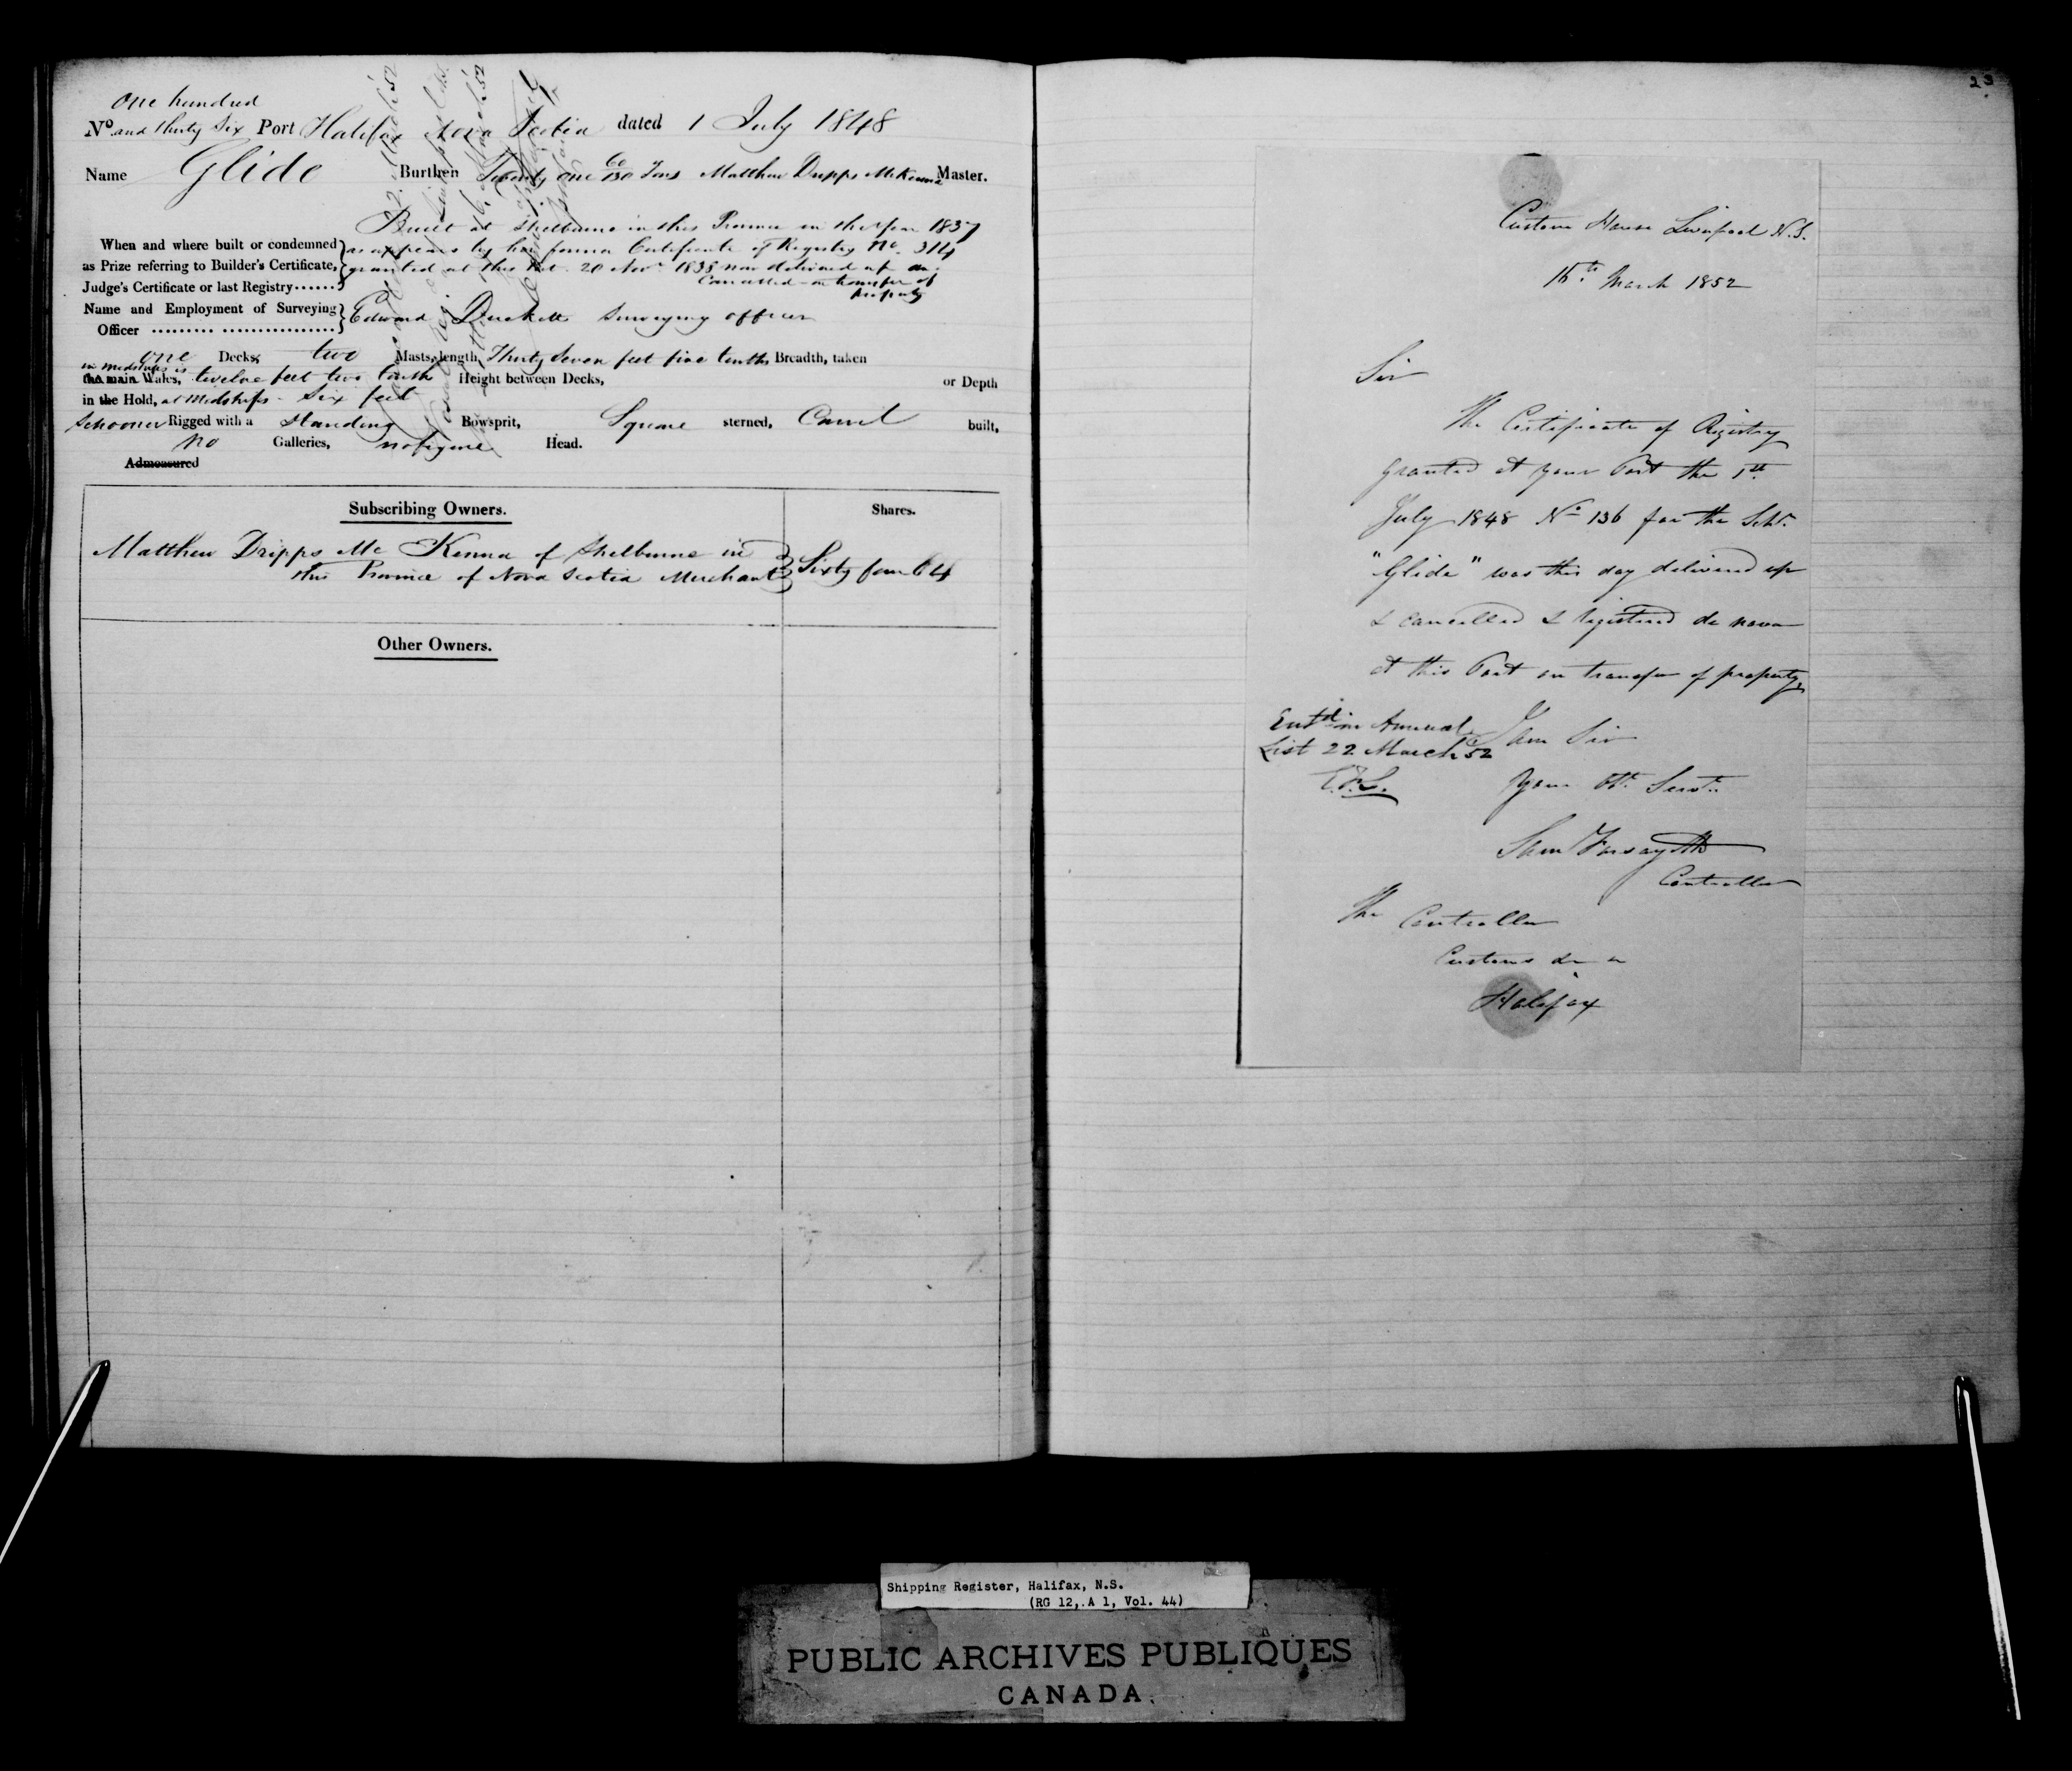 One hundred
No and thirty Six Port Halifax Nova Scotia dated 1 July 1848
Name Glide Burthen Twenty one 60/130 Tons Matthew Dripps McKenna Master.
Built at Shelburne in this Province in the Year 1837
When and where built or condemned as appears by her former Certificate of Registry No. 314
as Prize referring to Builder's Certificate, granted at this Port 20 Novr 1838 now delivered up
Judge's Certificate or last Registry...... Cancelled - on transfer of
property
Name and Employment of Surveying
Officer ......... ................ Edward Duckett Surveying officer
One Decks, two Masts, length, Thirty Seven feet five tenths Breadth, taken
in midships is
the main Wales, twelve feet two tenths Height between Decks, or Depth
in the Hold, at Midships - Six feet
Schooner Rigged with a Standing Bowsprit, Square sterned, Carvel built,
no Galleries, no figure Head.
Admeasured
Subscribing Owners. Shares.
Matthew Dripps Mc Kenna of Shelburne in
this Province of Nova Scotia Merchant Sixty four 64
Other Owners.
23
Custom House Liverpool N.S.
15th March 1852
Sir
The Certificate of Registry
granted at your Port the 1st
July 1848 No 136 for the Schr.
"Glide" was this day delivered up
& cancelled & registered de novo
at this Port on transfer of property,
Entd in Annual
List 22 March 52
I am Sir
Your Obt Servt
Sam Forsayth
Controller
The Controller
Customs
Halifax
Shipping Register, Halifax, N.S.
(RG 12, A 1, Vol. 44)
PUBLIC ARCHIVES PUBLIQUES
CANADA